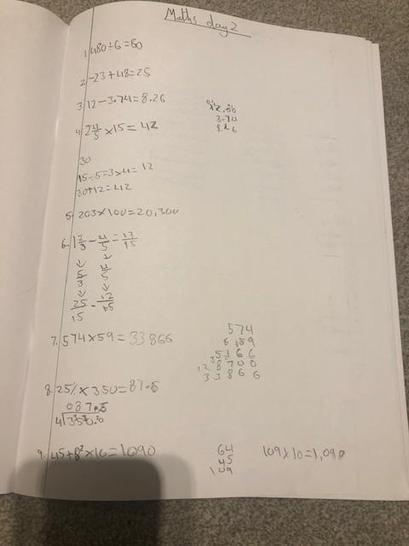 Maths day 2
1. 480÷6=60
2. -23+48=25
3. 12-3.74=8.26
3.74
8.26
4. 2 4/5 ×15=42
30
15÷5=3×4=12
30+12=42
5. 203×100=20,300
6. 1 2/3 - 4/5 = 13/15
↓ ↓
5/3 4/5
↓ ↓
25/15 - 12/15
7. 574×59=33866
574
59
5166
28700
33866
8. 25%×350=87.5
087.5
4 350.0
9. 45+8²×10=1090
64
45
109
109×10=1,090